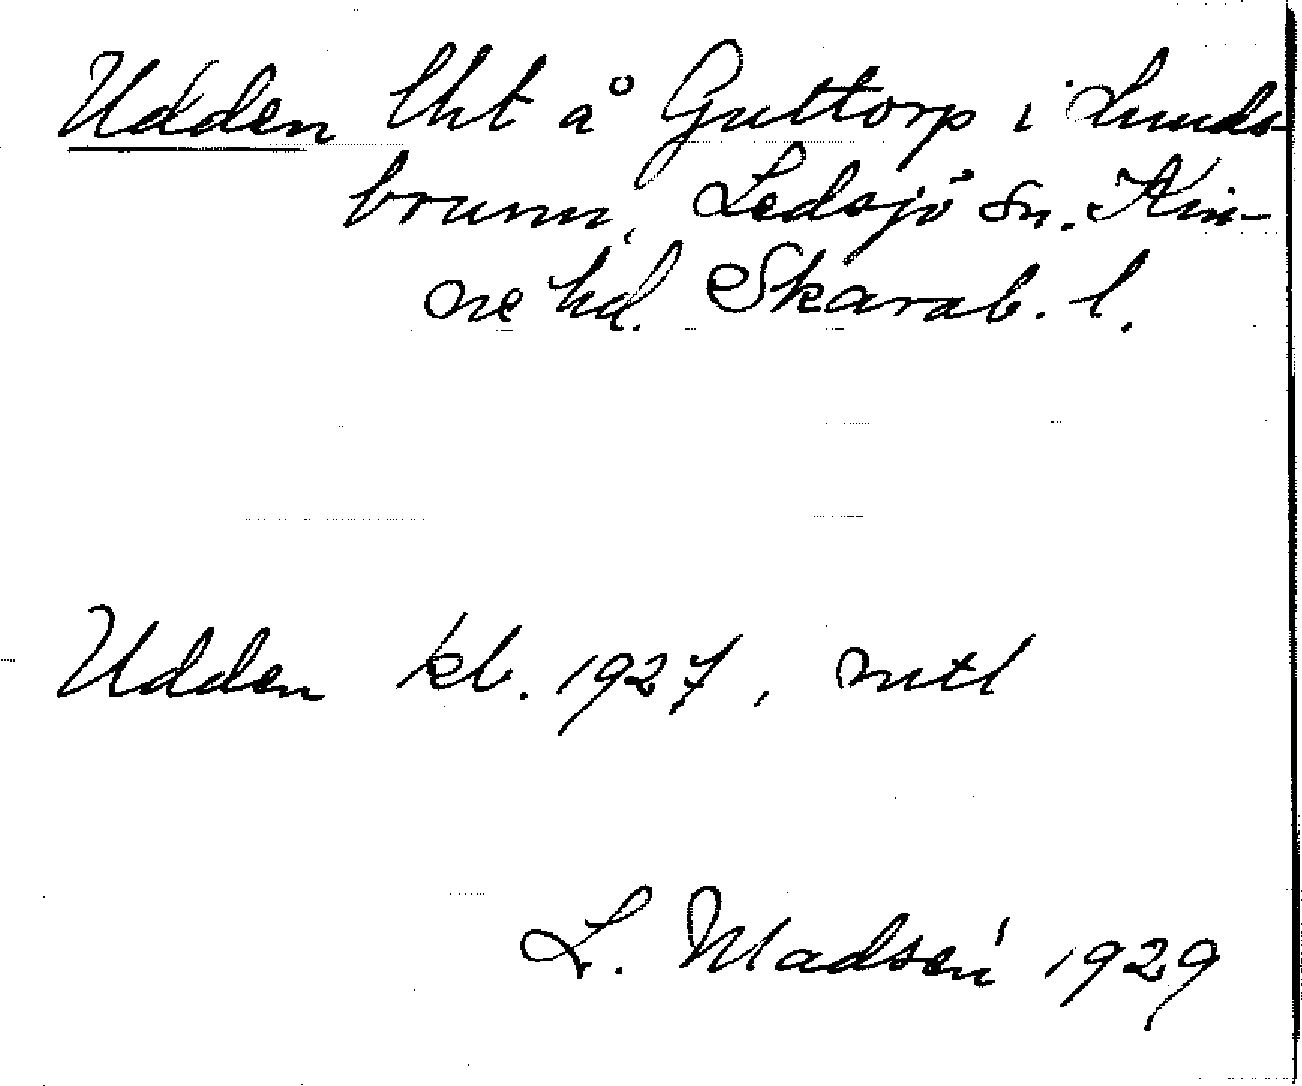 Udden lht å Guttorp i Lunds-
brunn, Ledsjö sn. Kin-
ne hd. Skarab. l.
Udden kb. 1927, mtl
L. Madsén 1929